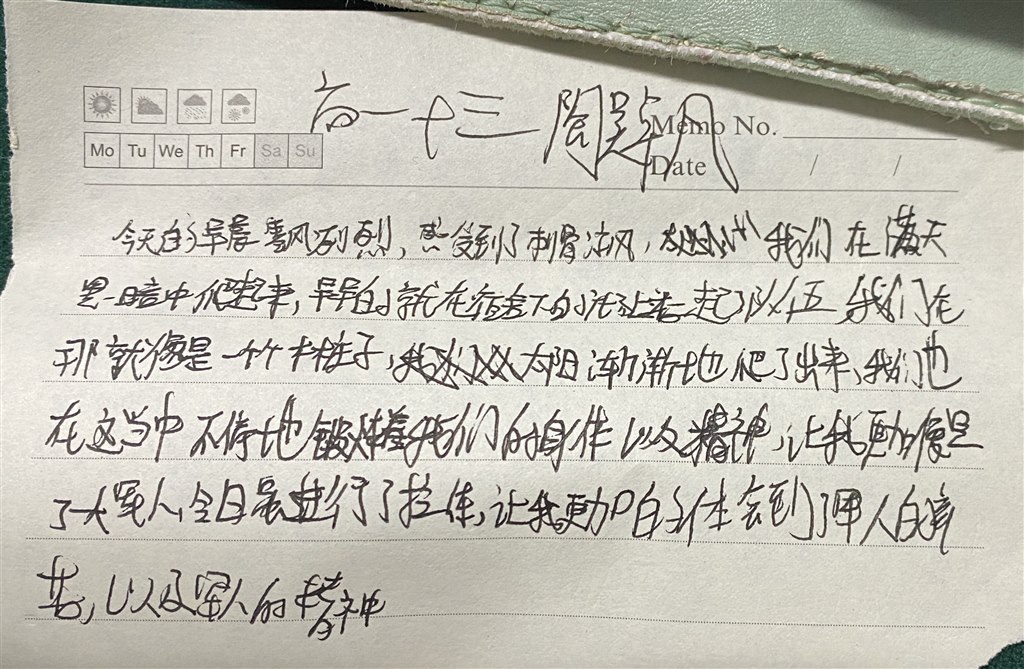 高一十三 周题风
Memo No.
Mo Tu We Th Fr Sa Su
Date / /
今天的早晨寒风烈烈，感受到了刺骨冻风，我们在满天
黑暗中爬起来，早早的就在宿舍下的站起了队伍，我们在
那就像是一个个木桩子，太阳渐渐地爬了出来，我们也
在这当中不停地锻炼着我们的身体以及精神，让我更加像是
了一大军人，今日晨进行了拉体，让我更加的体会到了军人的辛
苦，以及军人的精神